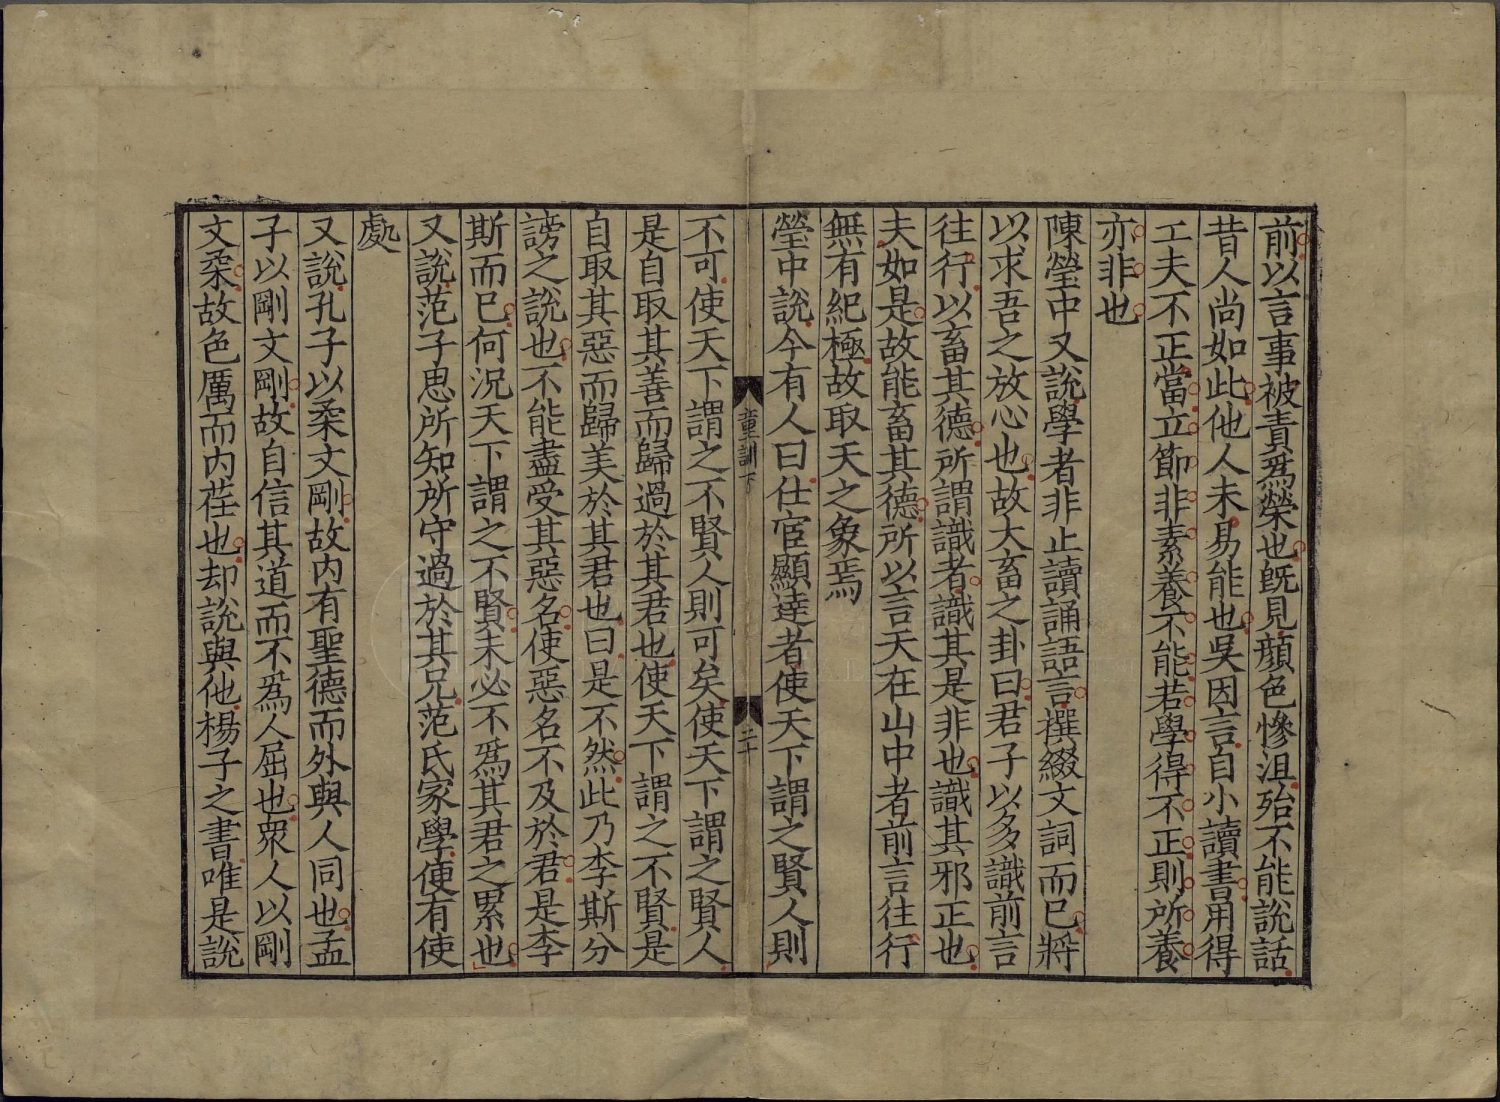 前以言事被責爲榮也旣見顔色慘沮殆不能說話
昔人尚如此他人未易能也吳因言自小讀書用得
工夫不正當立節非素養不能若學得不正則所養
亦非也
陳瑩中又說學者非止讀誦語言撰綴文詞而已將
以求吾之放心也故大畜之卦曰君子以多識前言
往行以畜其德所謂識者識其是非也識其邪正也
夫如是故能畜其德所以言天在山中者前言往行
無有紀極故取天之象焉
瑩中說今有人曰仕宦顯達者使天下謂之賢人則
童訓下
二十
不可使天下謂之不賢人則可矣使天下謂之賢人
是自取其善而歸過於其君也使天下謂之不賢是
自取其惡而歸美於其君也曰是不然此乃李斯分
謗之說也不能盡受其惡名使惡名不及於君是李
斯而已何況天下謂之不賢未必不爲其君之累也
又說范子思所知所守過於其兄范氏家學使有使
處
又說孔子以柔文剛故內有聖德而外與人同也孟
子以剛文剛故自信其道而不爲人屈也衆人以剛
文柔故色厲而內荏也却說與他楊子之書唯是說